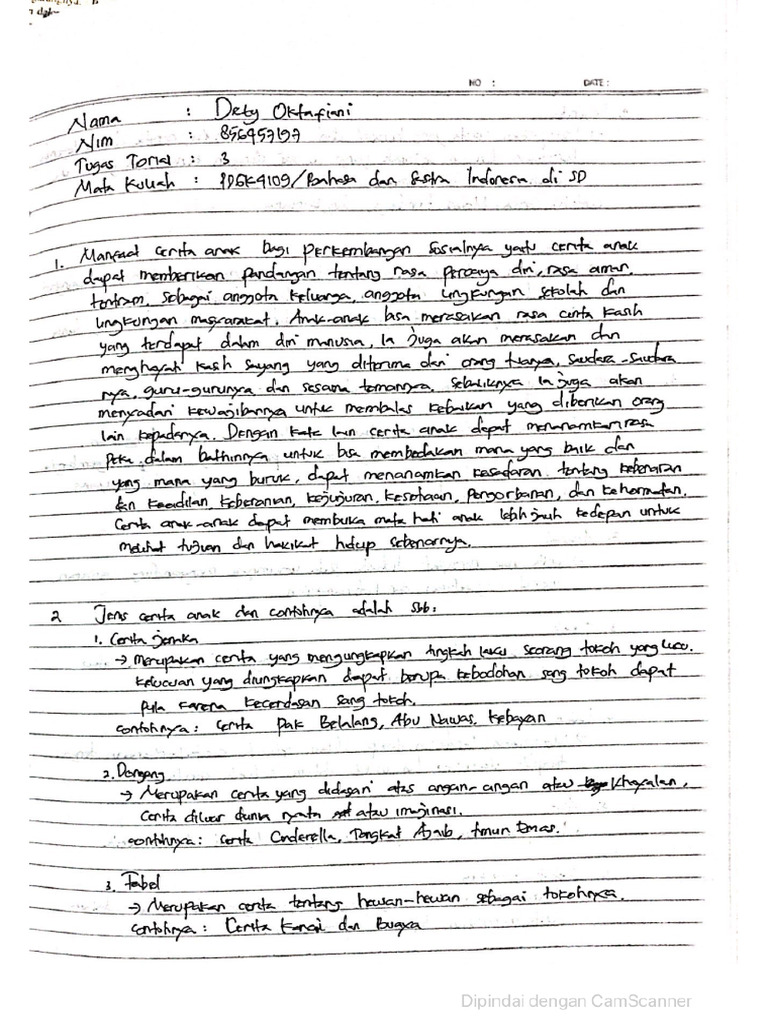 NO :
DATE :
Nama : Dety Oktafiani
Nim : 856457197
Tugas Torial : 3
Mata Kuliah : PDGK4109/Bahasa dan Sastra Indonesia di SD
1. Manfaat cerita anak bagi perkembangan sosialnya yaitu cerita anak
dapat memberikan pandangan tentang rasa percaya diri, rasa aman,
tentram, sebagai anggota keluarga, anggota lingkungan sekolah dan
lingkungan masyarakat. Anak-anak bisa merasakan rasa cinta kasih
yang terdapat dalam diri manusia, Ia juga akan merasakan dan
menghayati kasih sayang yang diterima dari orang tuanya, saudara-saudara
nya, guru-gurunya dan sesama temannya. Sebaliknya Ia juga akan
menyadari kewajibannya untuk membalas kebaikan yang diberikan orang
lain kepadanya. Dengan kata lain cerita anak dapat menanamkan rasa
peka dalam bathinnya untuk bisa membedakan mana yang baik dan
yang mana yang buruk, dapat menanamkan kesadaran tentang kebenaran
dan keadilan, keberanian, kejujuran, kesetiaan, pengorbanan, dan kehormatan.
Cerita anak-anak dapat membuka mata hati anak lebih jauh kedepan untuk
melihat tujuan dan hakikat hidup sebenarnya.
2 Jenis cerita anak dan contohnya adalah sbb:
1. Cerita jenaka
→ Merupakan cerita yang mengungkapkan tingkah laku seorang tokoh yang lucu.
Kelucuan yang diungkapkan dapat berupa kebodohan sang tokoh dapat
pula karena kecerdasan sang tokoh.
contohnya: cerita Pak Belalang, Abu Nawas, Kebayan
2. Dongeng
→ Merupakan cerita yang didasari atas angan-angan atau khayalan,
cerita diluar dunia nyata atau imajinasi.
contohnya: cerita Cinderella, Tongkat Ajaib, timun Emas.
3. Fabel
→ Merupakan cerita tentang hewan-hewan sebagai tokohnya.
contohnya: Cerita Kancil dan Buaya
Dipindai dengan CamScanner